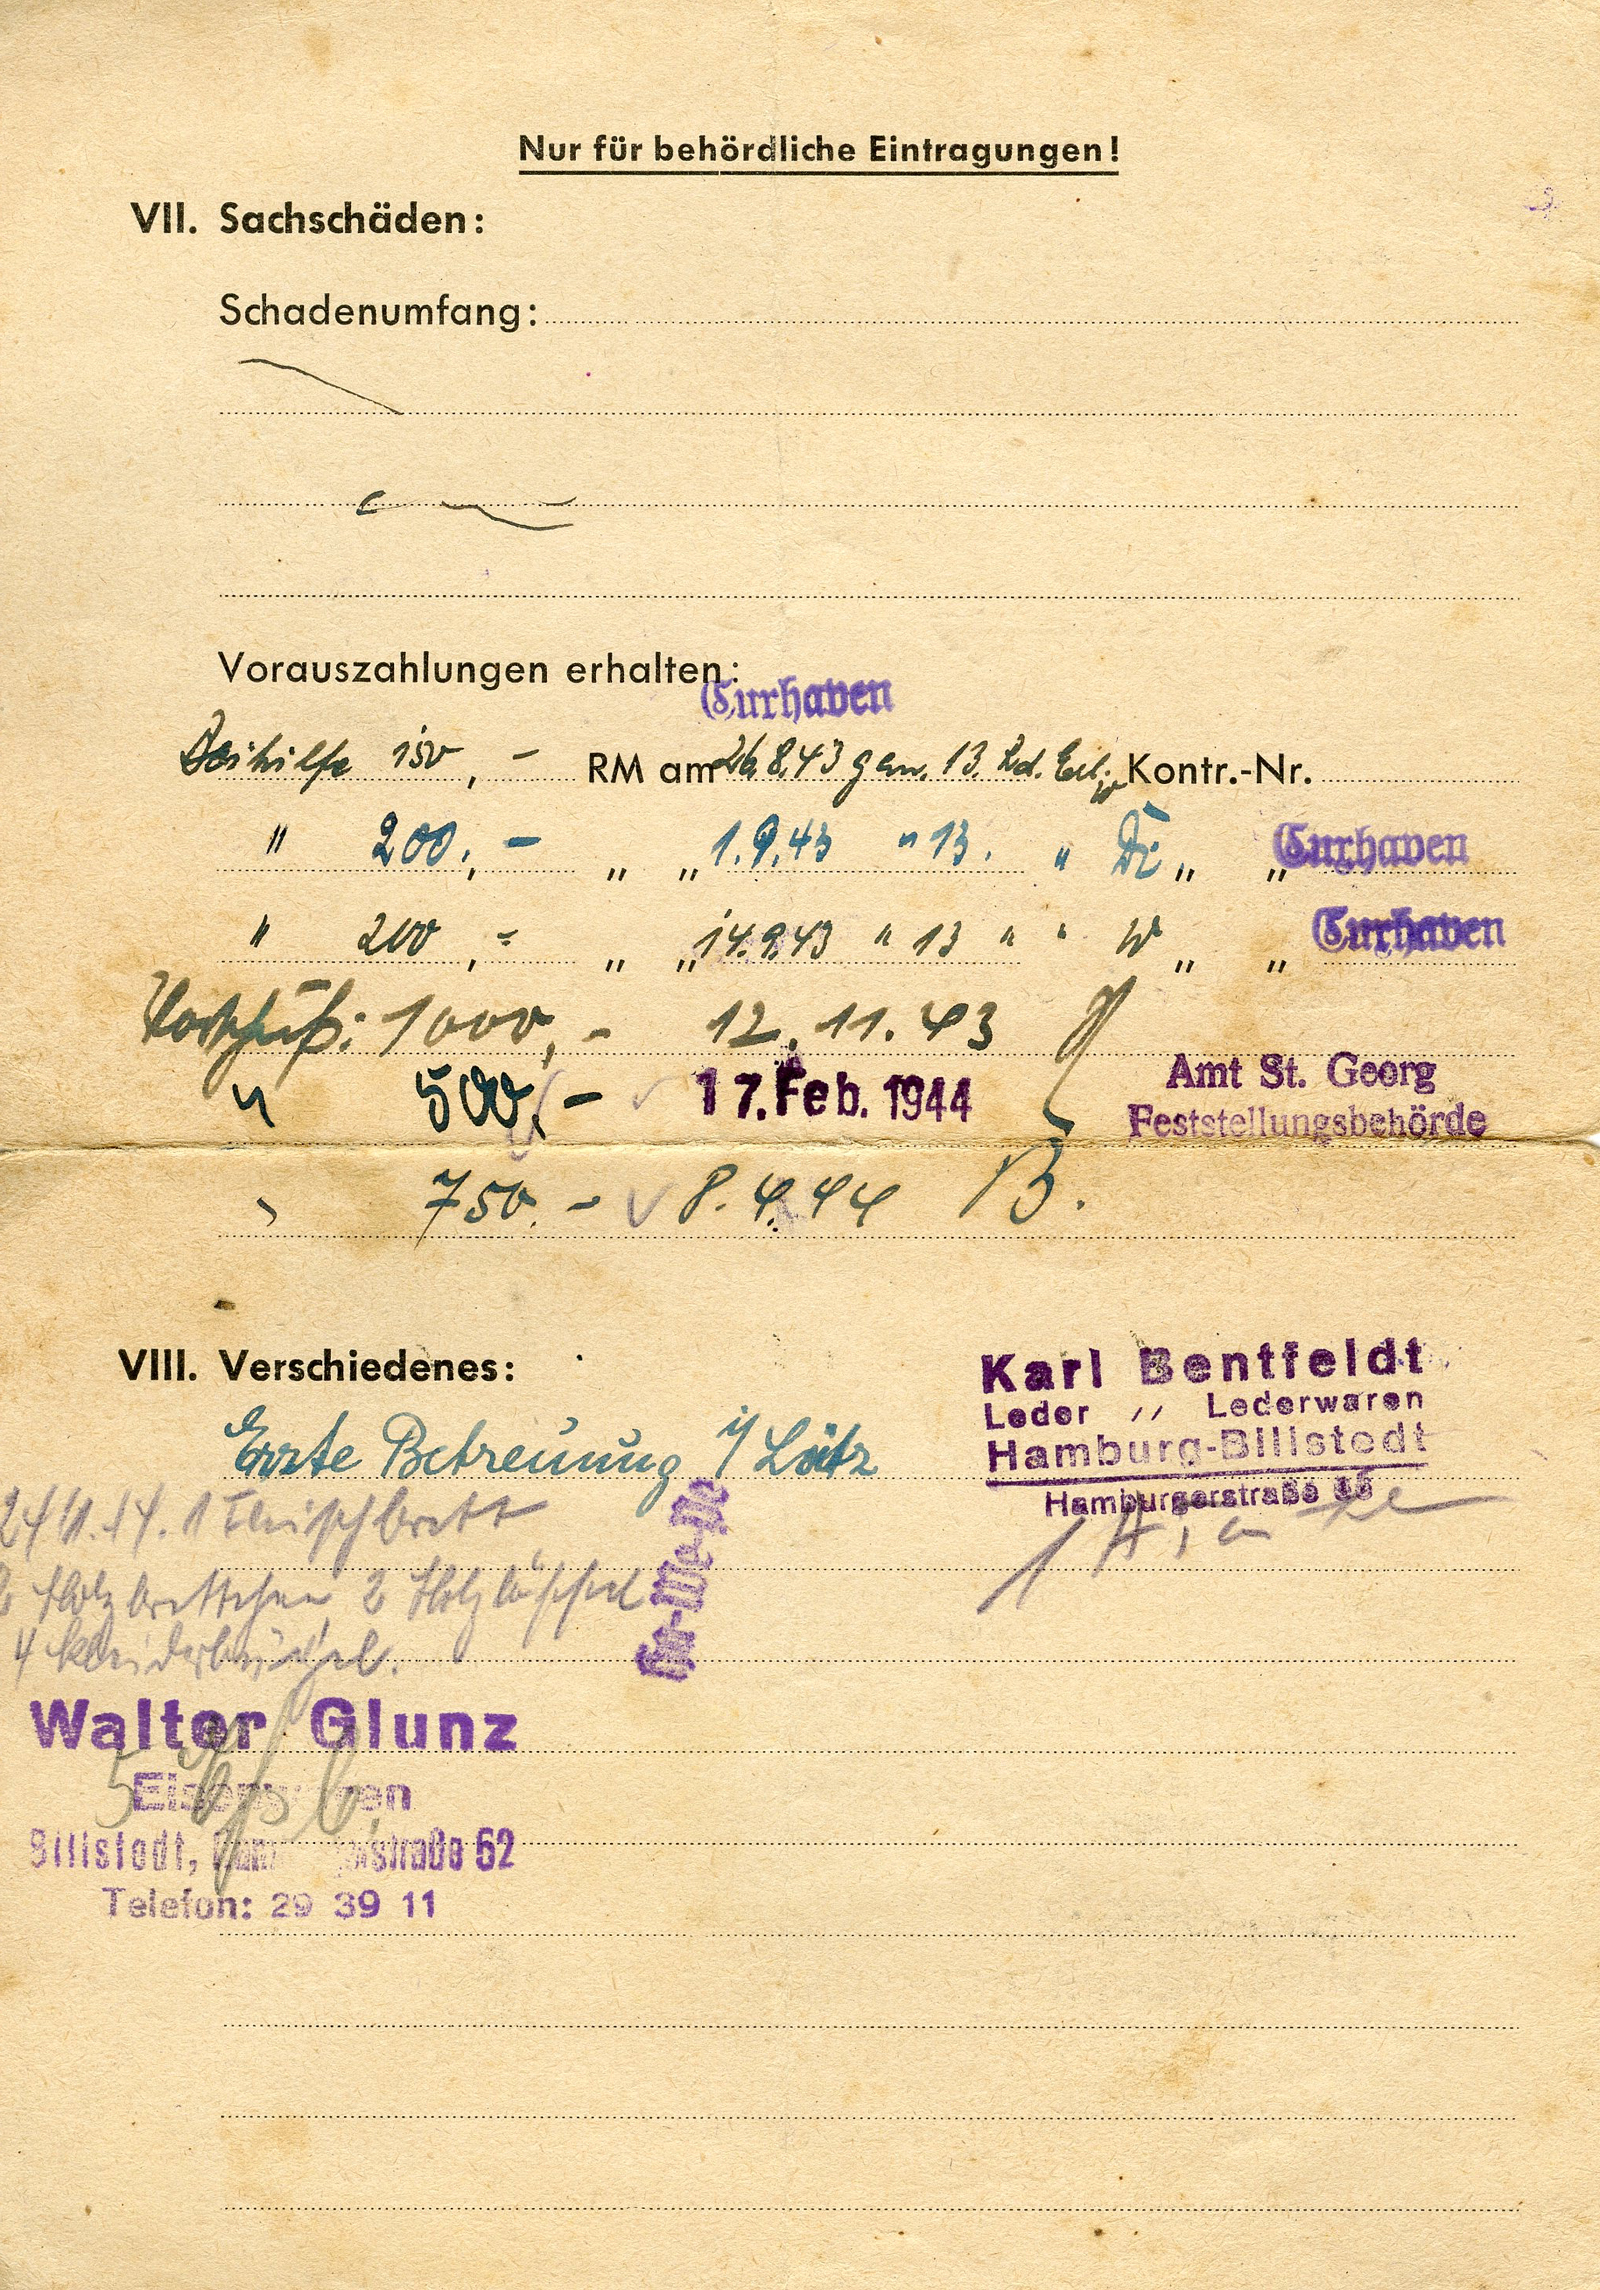 Nur für behördliche Eintragungen!
VII. Sachschäden:
Schadenumfang:
Vorauszahlungen erhalten:
Cuxhaven
Beihilfe 150,- RM am 26.8.43 gem. 13. Kontr.-Nr.
" 200,- " " 1.9.43 " 13. " " " Cuxhaven
" 200,- " " 14.9.43 " 13 " " W " " Cuxhaven
Vorschuß: 1000,- 12.11.43
" 500,- 17. Feb. 1944
Amt St. Georg
Feststellungsbehörde
750.- 8.4.44 B.
VIII. Verschiedenes:
Karl Bentfeldt
Leder " Lederwaren
Hamburg-Billstedt
Hamburgerstraße
Erste Betreuung i/ Lötz
24.11.44. 1 Fleischbrett
2 Holzbrettchen 2 Holzlöffel
4 Kleiderbügel.
Walter Glunz
Eisenwaren
Billstedt, straße 62
Telefon: 29 39 11